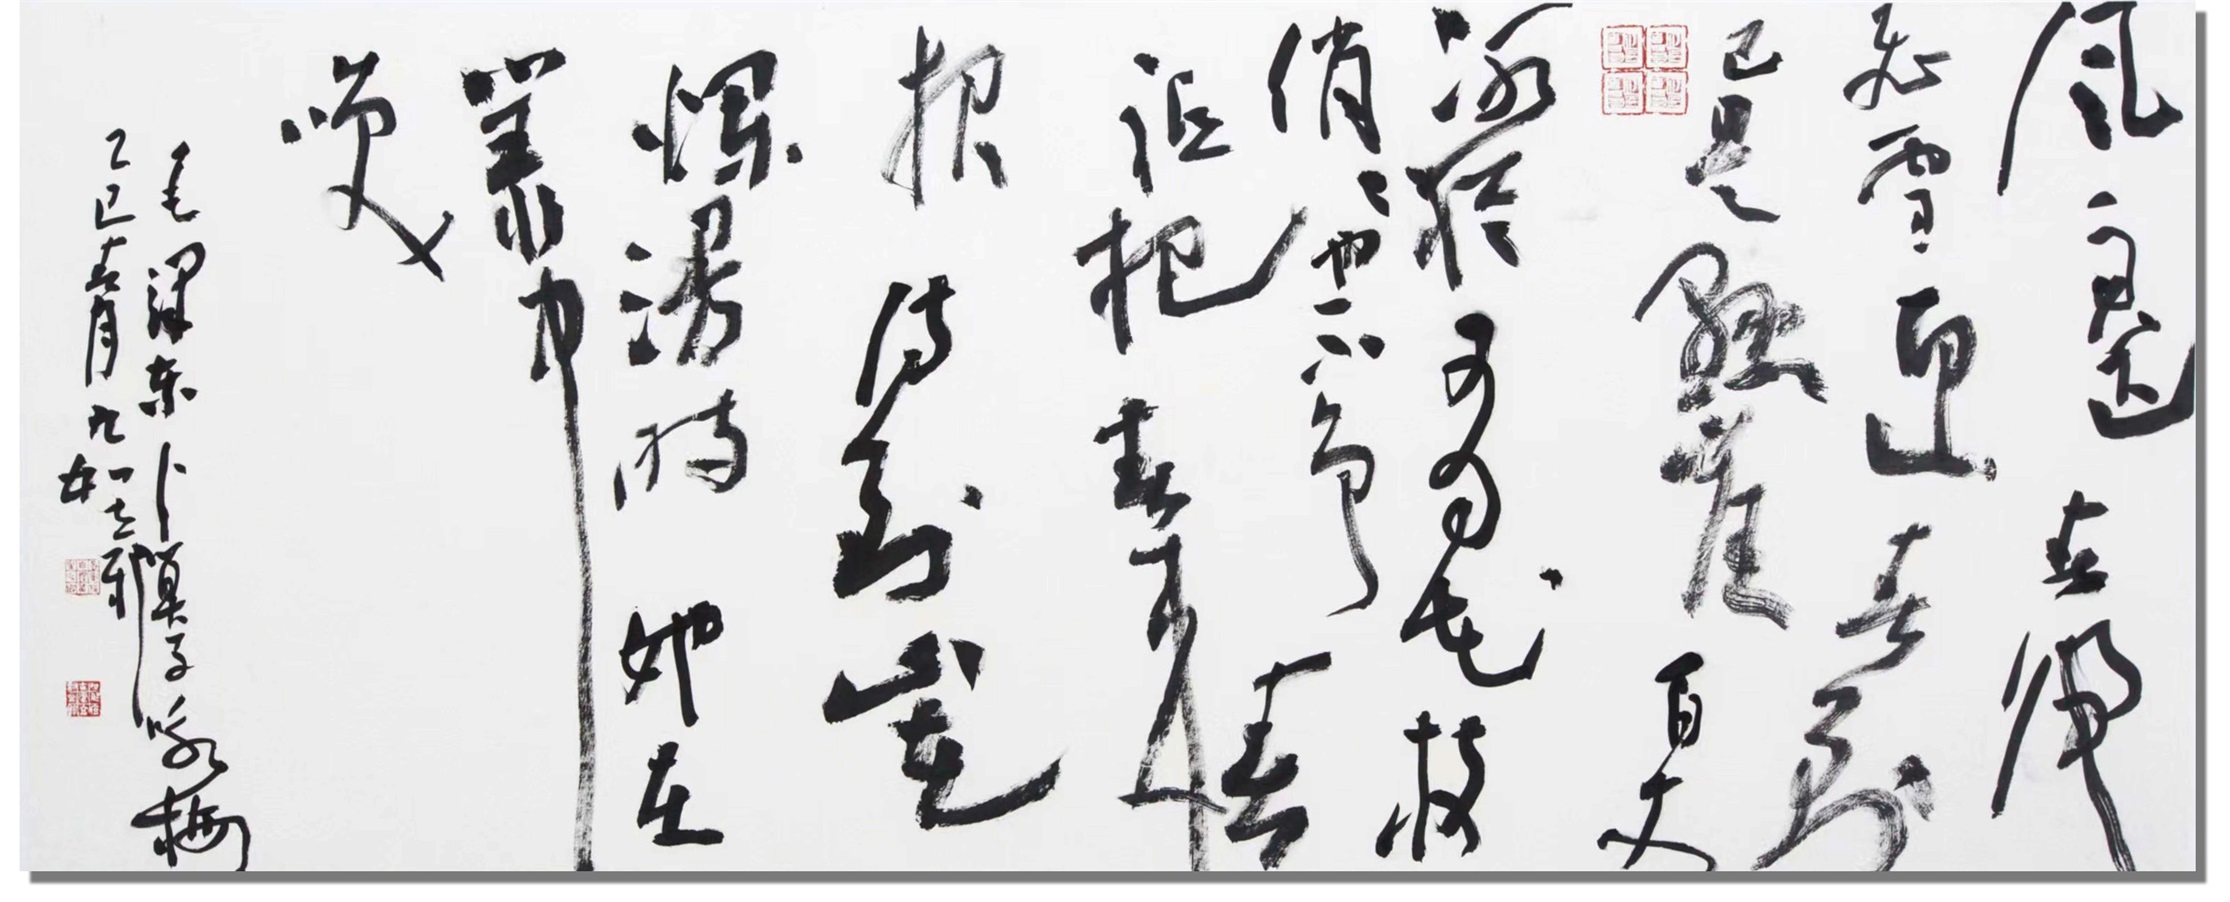 风雨送春归
飞雪迎春到
已是懸崖百丈
冰犹有花枝
俏俏也不争春
祗把春来
报待到山花
烂漫时她在
叢中
笑
毛泽东卜算子咏梅
乙巳春月九如